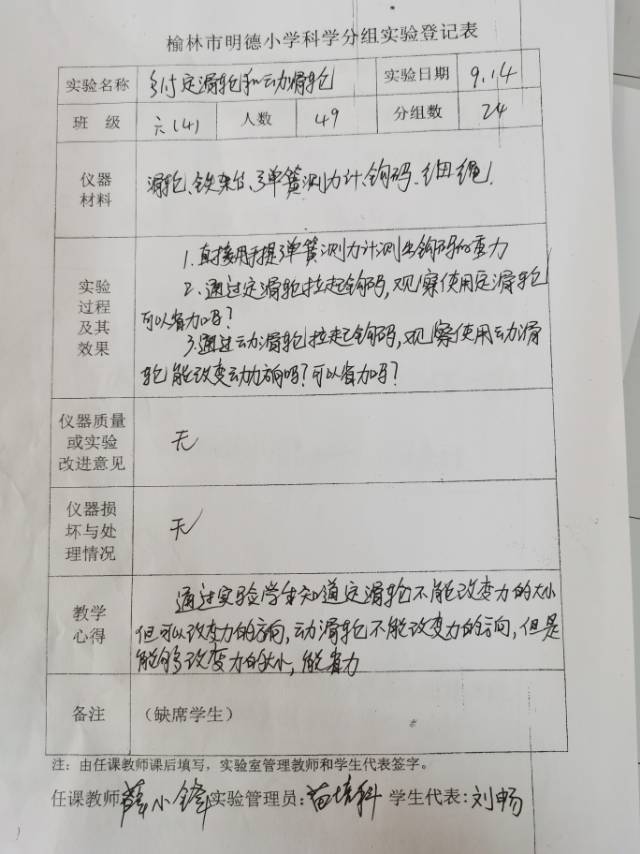 榆林市明德小学科学分组实验登记表
实验名称 研讨定滑轮和动滑轮 实验日期 9.14
班 级 六(4) 人数 49 分组数 24
仪器
材料
滑轮、铁架台、弹簧测力计、钩码、细绳.
实验
过程
及其
效果
1.直接用手提弹簧测力计测出钩码的重力
2.通过定滑轮拉起钩码,观察使用定滑轮
可以省力吗?
3.通过动滑轮拉起钩码,观察使用动滑
轮能改变动力方向吗?可以省力吗?
仪器质量
或实验
改进意见
无
仪器损
坏与处
理情况
无
教学
心得
通过实验学生知道定滑轮不能改变力的大小
但可以改变力的方向,动滑轮不能改变力的方向,但是
能够改变力的大小,能省力
备注 (缺席学生)
注:由任课教师课后填写,实验室管理教师和学生代表签字。
任课教师 薛小锋 实验管理员:苗培科 学生代表:刘畅